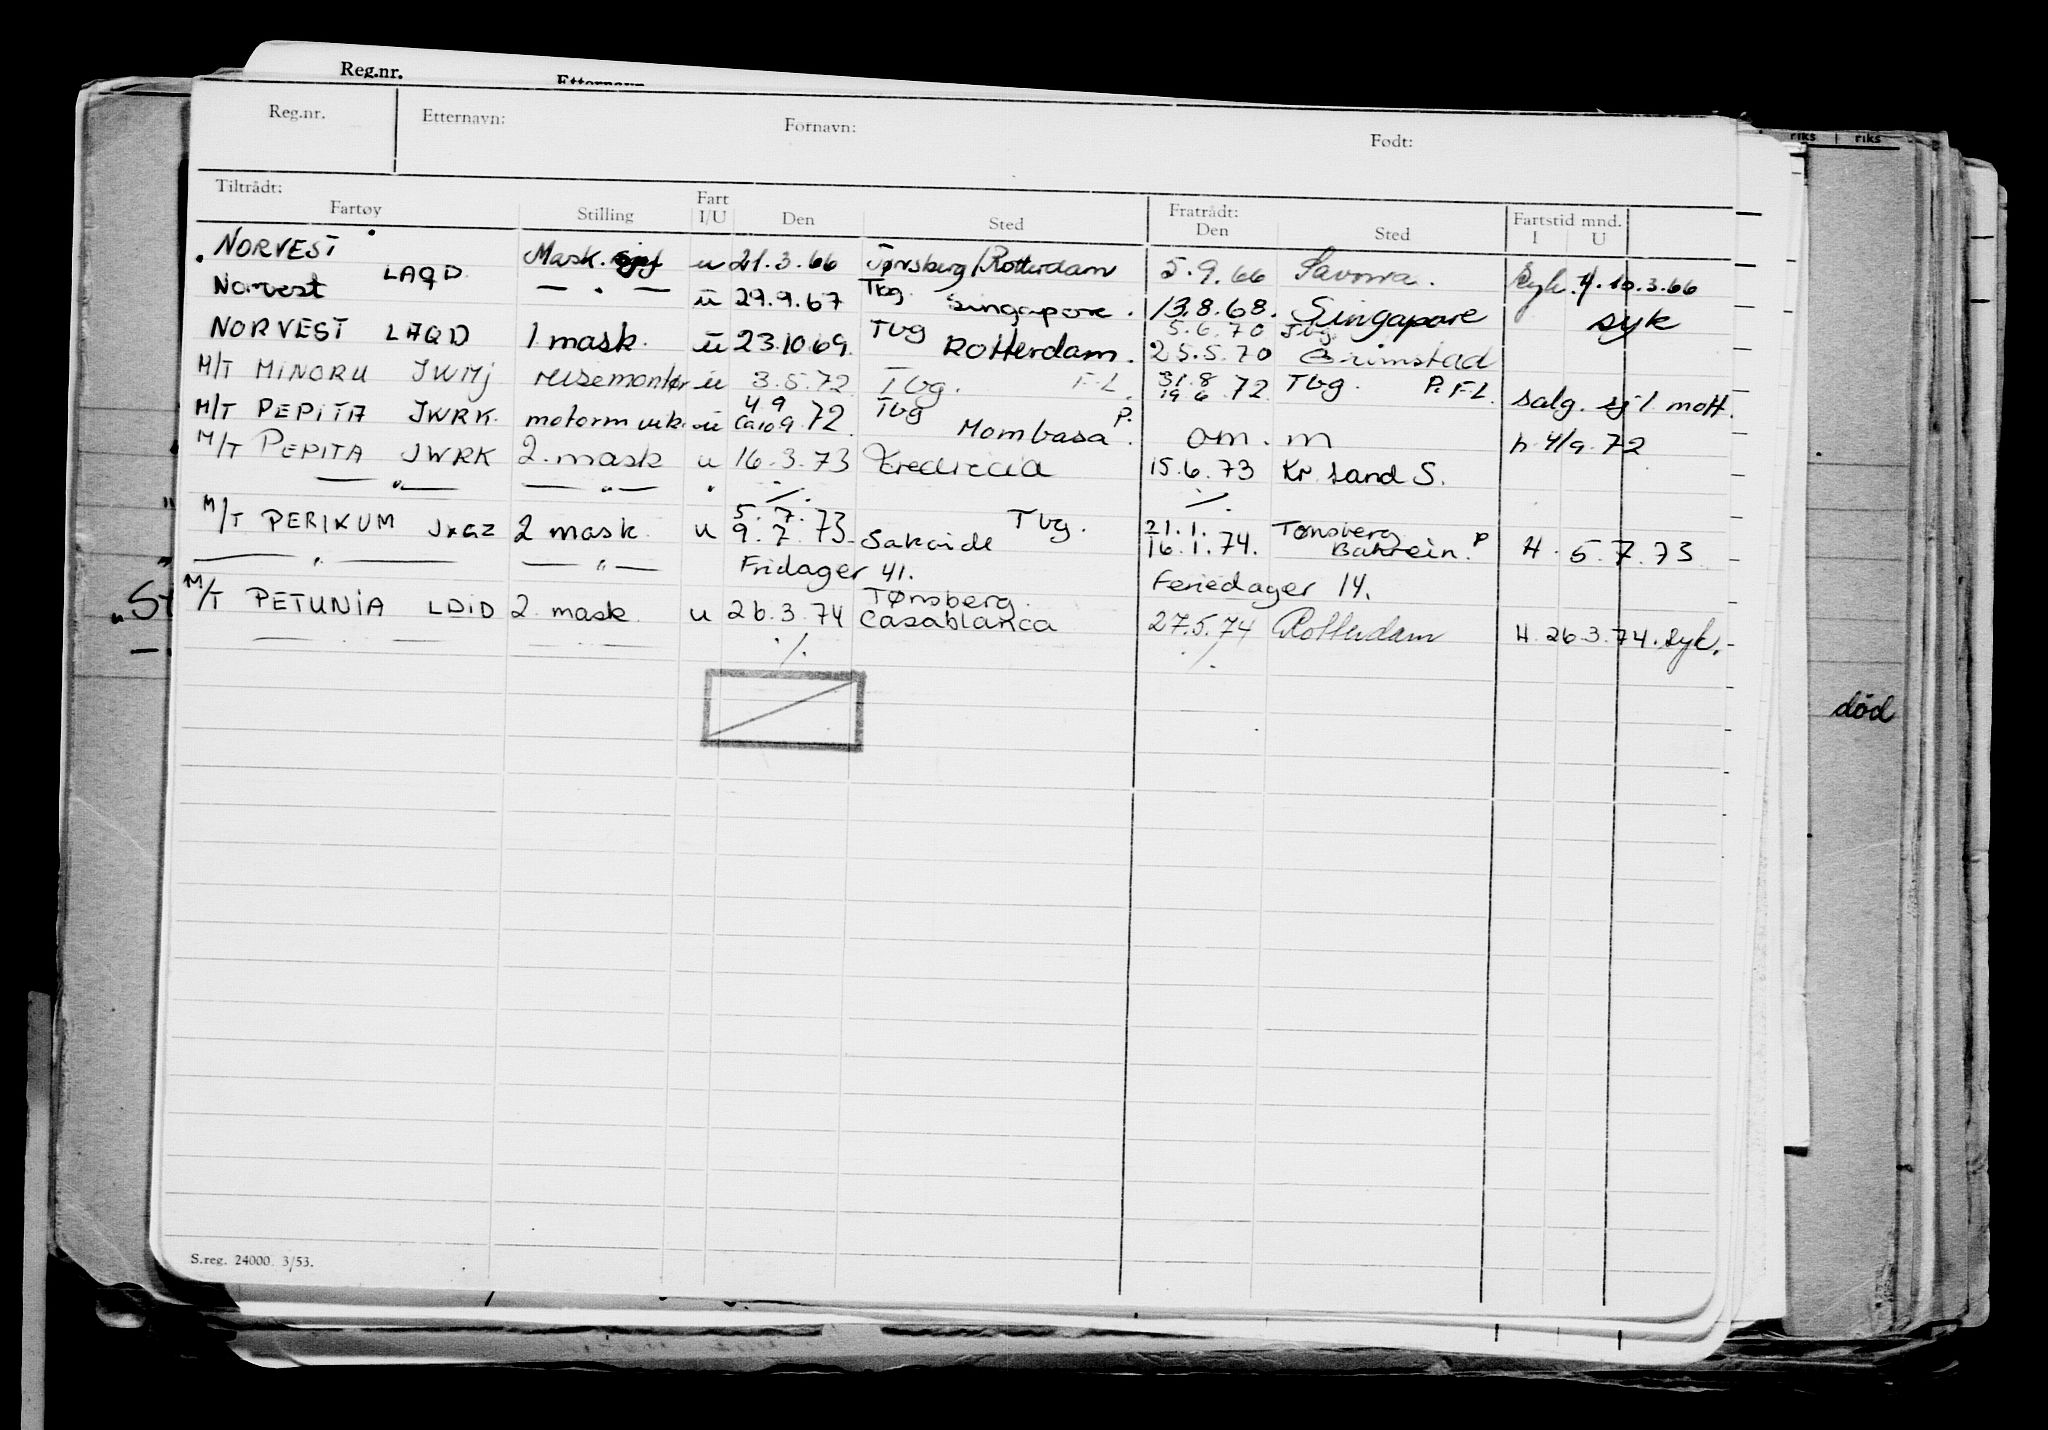 Reg.nr.
Reg.nr. Etternavn: Fornavn: Født:
riks riks
Tiltrådt: Fratrådt:
Fartøy Stilling Fart I/U Den Sted Den Sted Fartstid mnd. I U
NORVEST LAQD Mask. u 21.3.66 Tønsberg/Rotterdam 5.9.66 Savona. Syk. H. 10.3.66
Norvest — " — u 27.9.67 Tbg. Singapore. 13.8.68. Singapore syk
NORVEST LAQD 1 mask. u 23.10.69. Tbg Rotterdam. 5.6.70 Tbg.
25.5.70 Grimstad
M/T MINORU JWMJ reisemontør u 3.5.72 Tbg. F.L. 31.8
19.6 72. Tbg. P. F.L. salg. sj. l. mott.
M/T PEPITA JWRK. motorm vik. u 4.9
Ca 10 9.72. Tbg Mombasa P. om. m h. 4/9.72
M/T PEPITA JWRK 2. mask u 16.3.73 Fredericia 15.6.73 Kr. sand S.
— " — — " — " ·/. ·/.
M/T PERIKUM JXGZ 2 mask. u 5.7.73 Tbg. 21.1. Tønsberg
9.7.73. Sakaide 16.1.74. Bahrein. P H. 5.7.73
— " — — " — Fridager 41. Feriedager 14.
M/T PETUNIA LDID 2. mask. u 26.3.74 Tønsberg.
Casablanca 27.5.74 Rotterdam H. 26.3.74. syk.
·/. ·/.
død
S.reg. 24000 3/53.